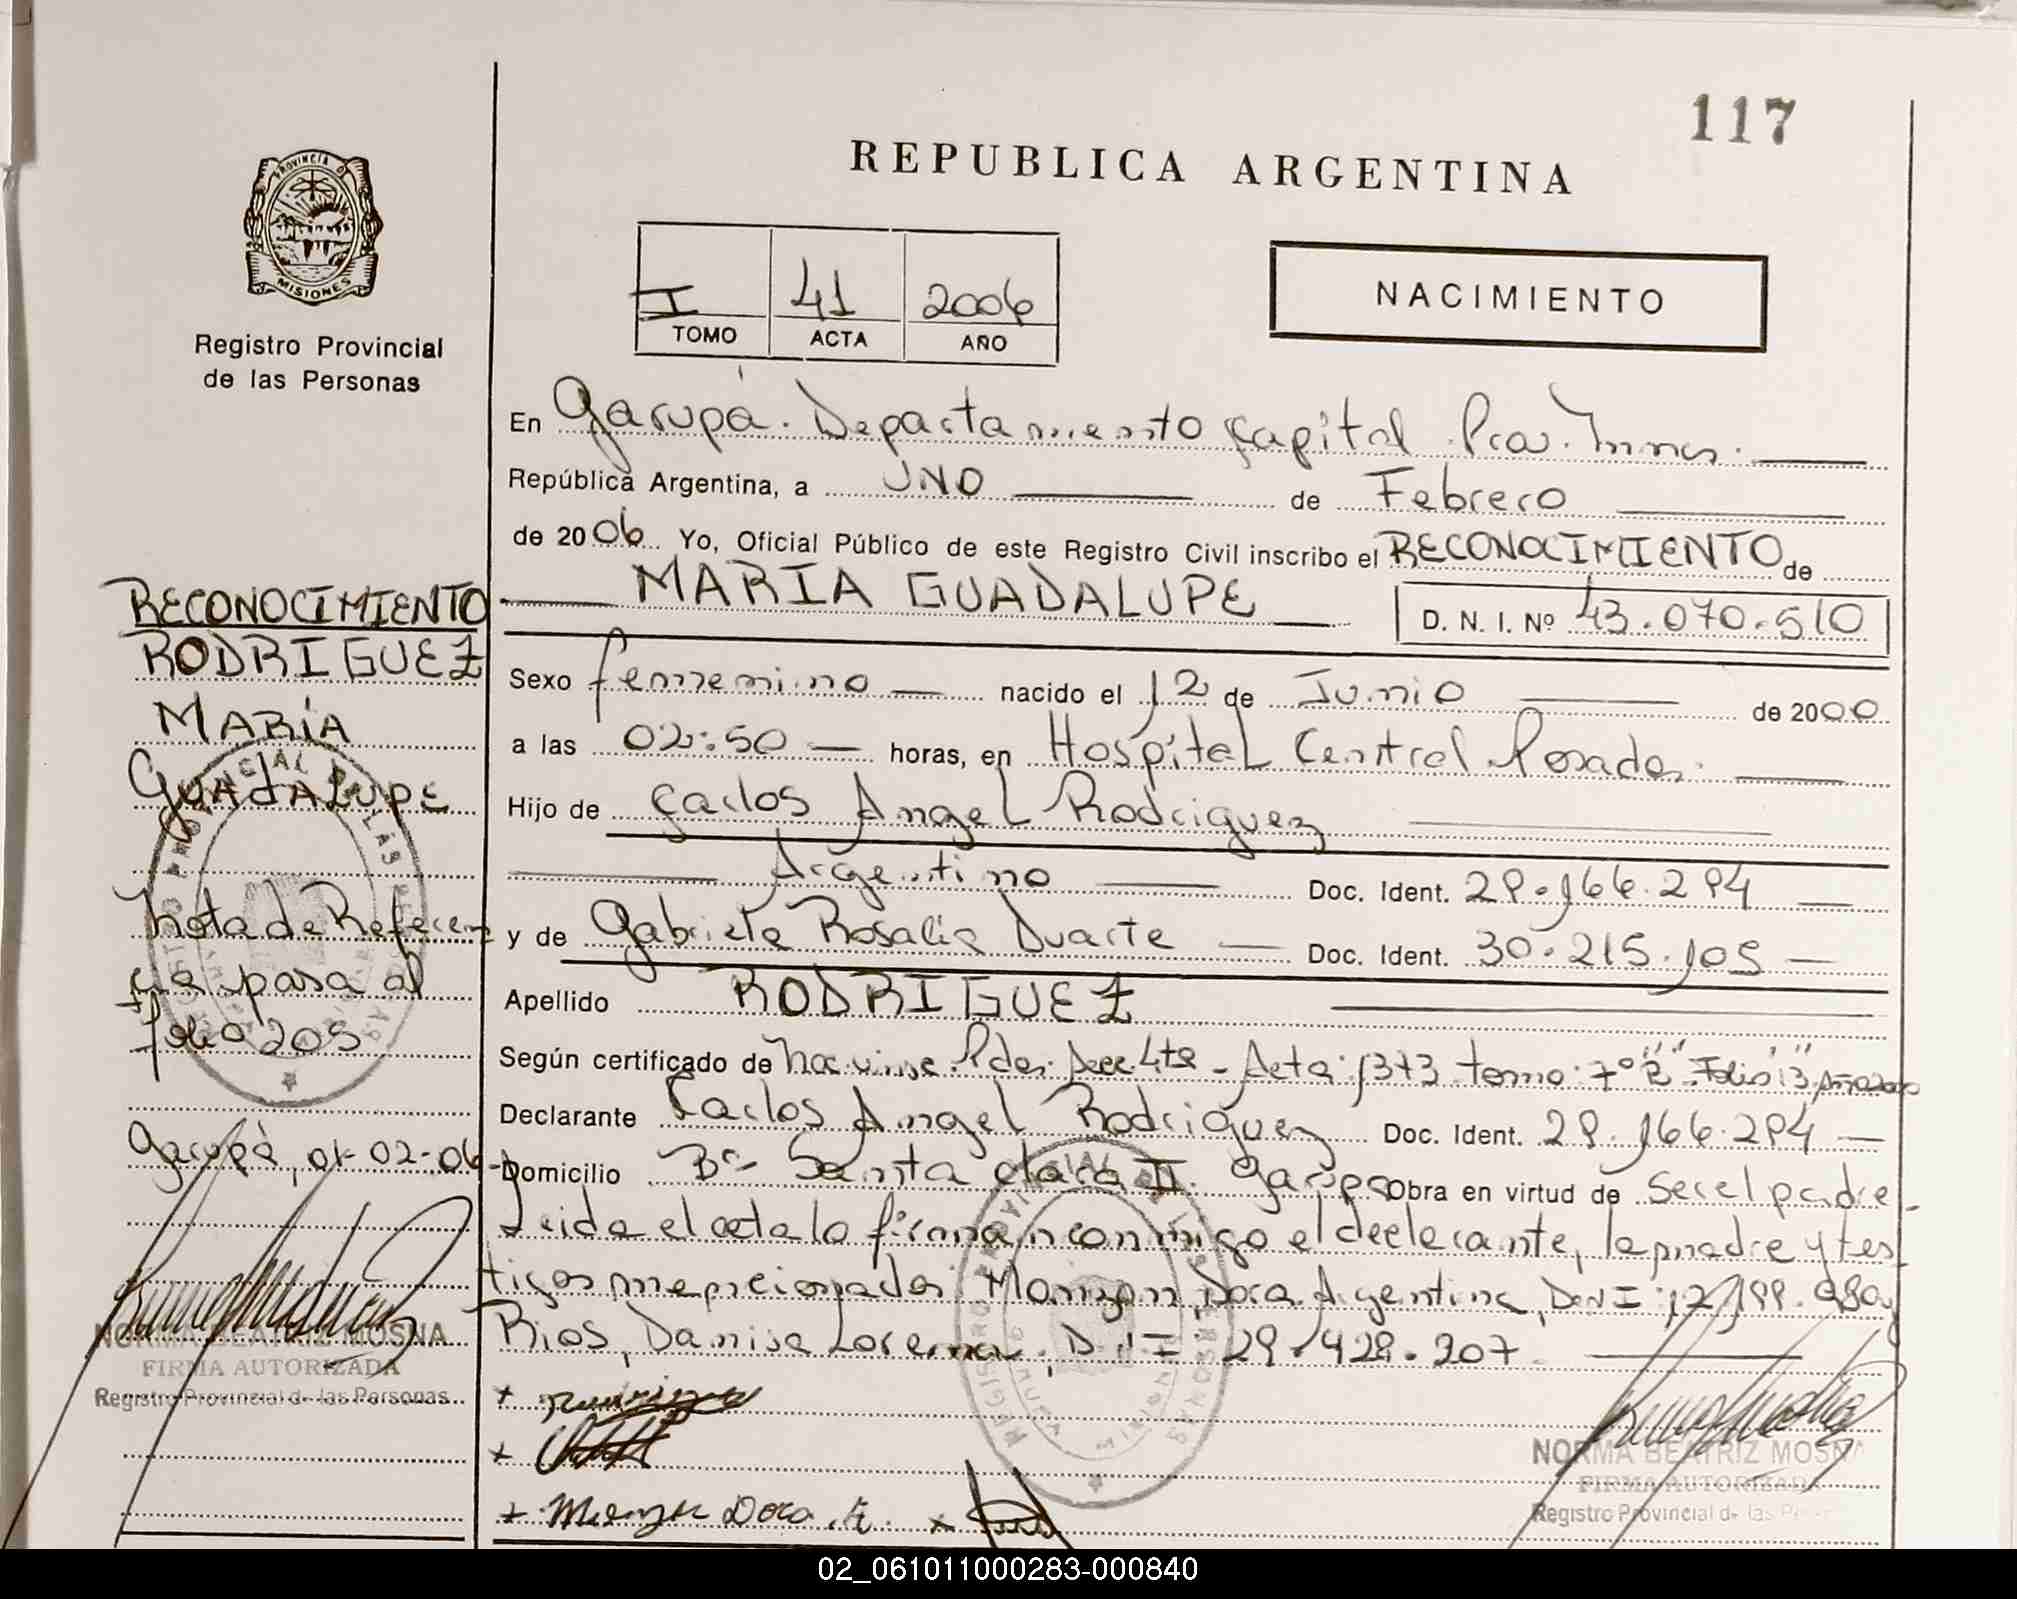 117
REPUBLICA ARGENTINA
PROVINCIA D
MISIONES
Registro Provincial
de las Personas
I 41 2006
TOMO ACTA AÑO
NACIMIENTO
En Garupá. Departamento Capital
República Argentina, a UNO de Febrero
de 2006 Yo, Oficial Público de este Registro Civil inscribo el RECONOCIMIENTO de
MARIA GUADALUPE D. N. I. Nº 43.070.510
RECONOCIMIENTO
RODRIGUEZ
MARÍA
GUADALUPE
Nota de Referen
cia pasa al
folio 205
Garupá, 01-02-06
NORMA BEATRIZ MOSNA
FIRMA AUTORIZADA
Registro Provincial de las Personas
Sexo femenino nacido el 12 de Junio de 2000
a las 02:50 horas, en Hospital Central Posadas.
Hijo de Carlos Angel Rodriguez
Argentino Doc. Ident.
y de Gabriela Rosalia Duarte Doc. Ident. 30.215.105
Apellido RODRIGUEZ
Según certificado de Acta: 1373 tomo: 7º Folio: 13
Declarante Carlos Angel Rodriguez Doc. Ident.
Domicilio Bº Santa Clara II. Garupá Obra en virtud de ser el padre.
Leida el acta la firman conmigo el declarante, la madre y tes
tigos mencionados Monzon, Dora Argentina, DNI:
Rios, Danisa Lorena. DNI 29.428.207
Dora A.
NORMA BEATRIZ MOSNA
FIRMA AUTORIZADA
Registro Provincial de las
02_061011000283-000840